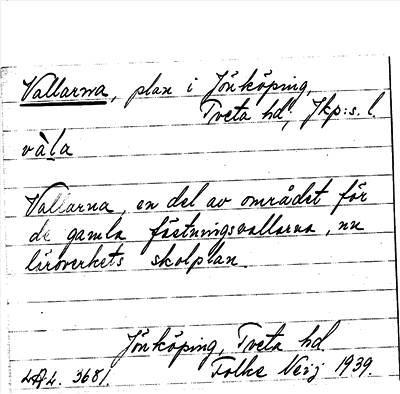 Vallarna, plan i Jönköping,
Tveta hd, Jkp:s. l.
vàla
Vallarna, en del av området för
de gamla fästningsvallarna, nu
läroverkets skolplan.
Jönköping, Tveta hd.
3681. Folke Neij 1939.